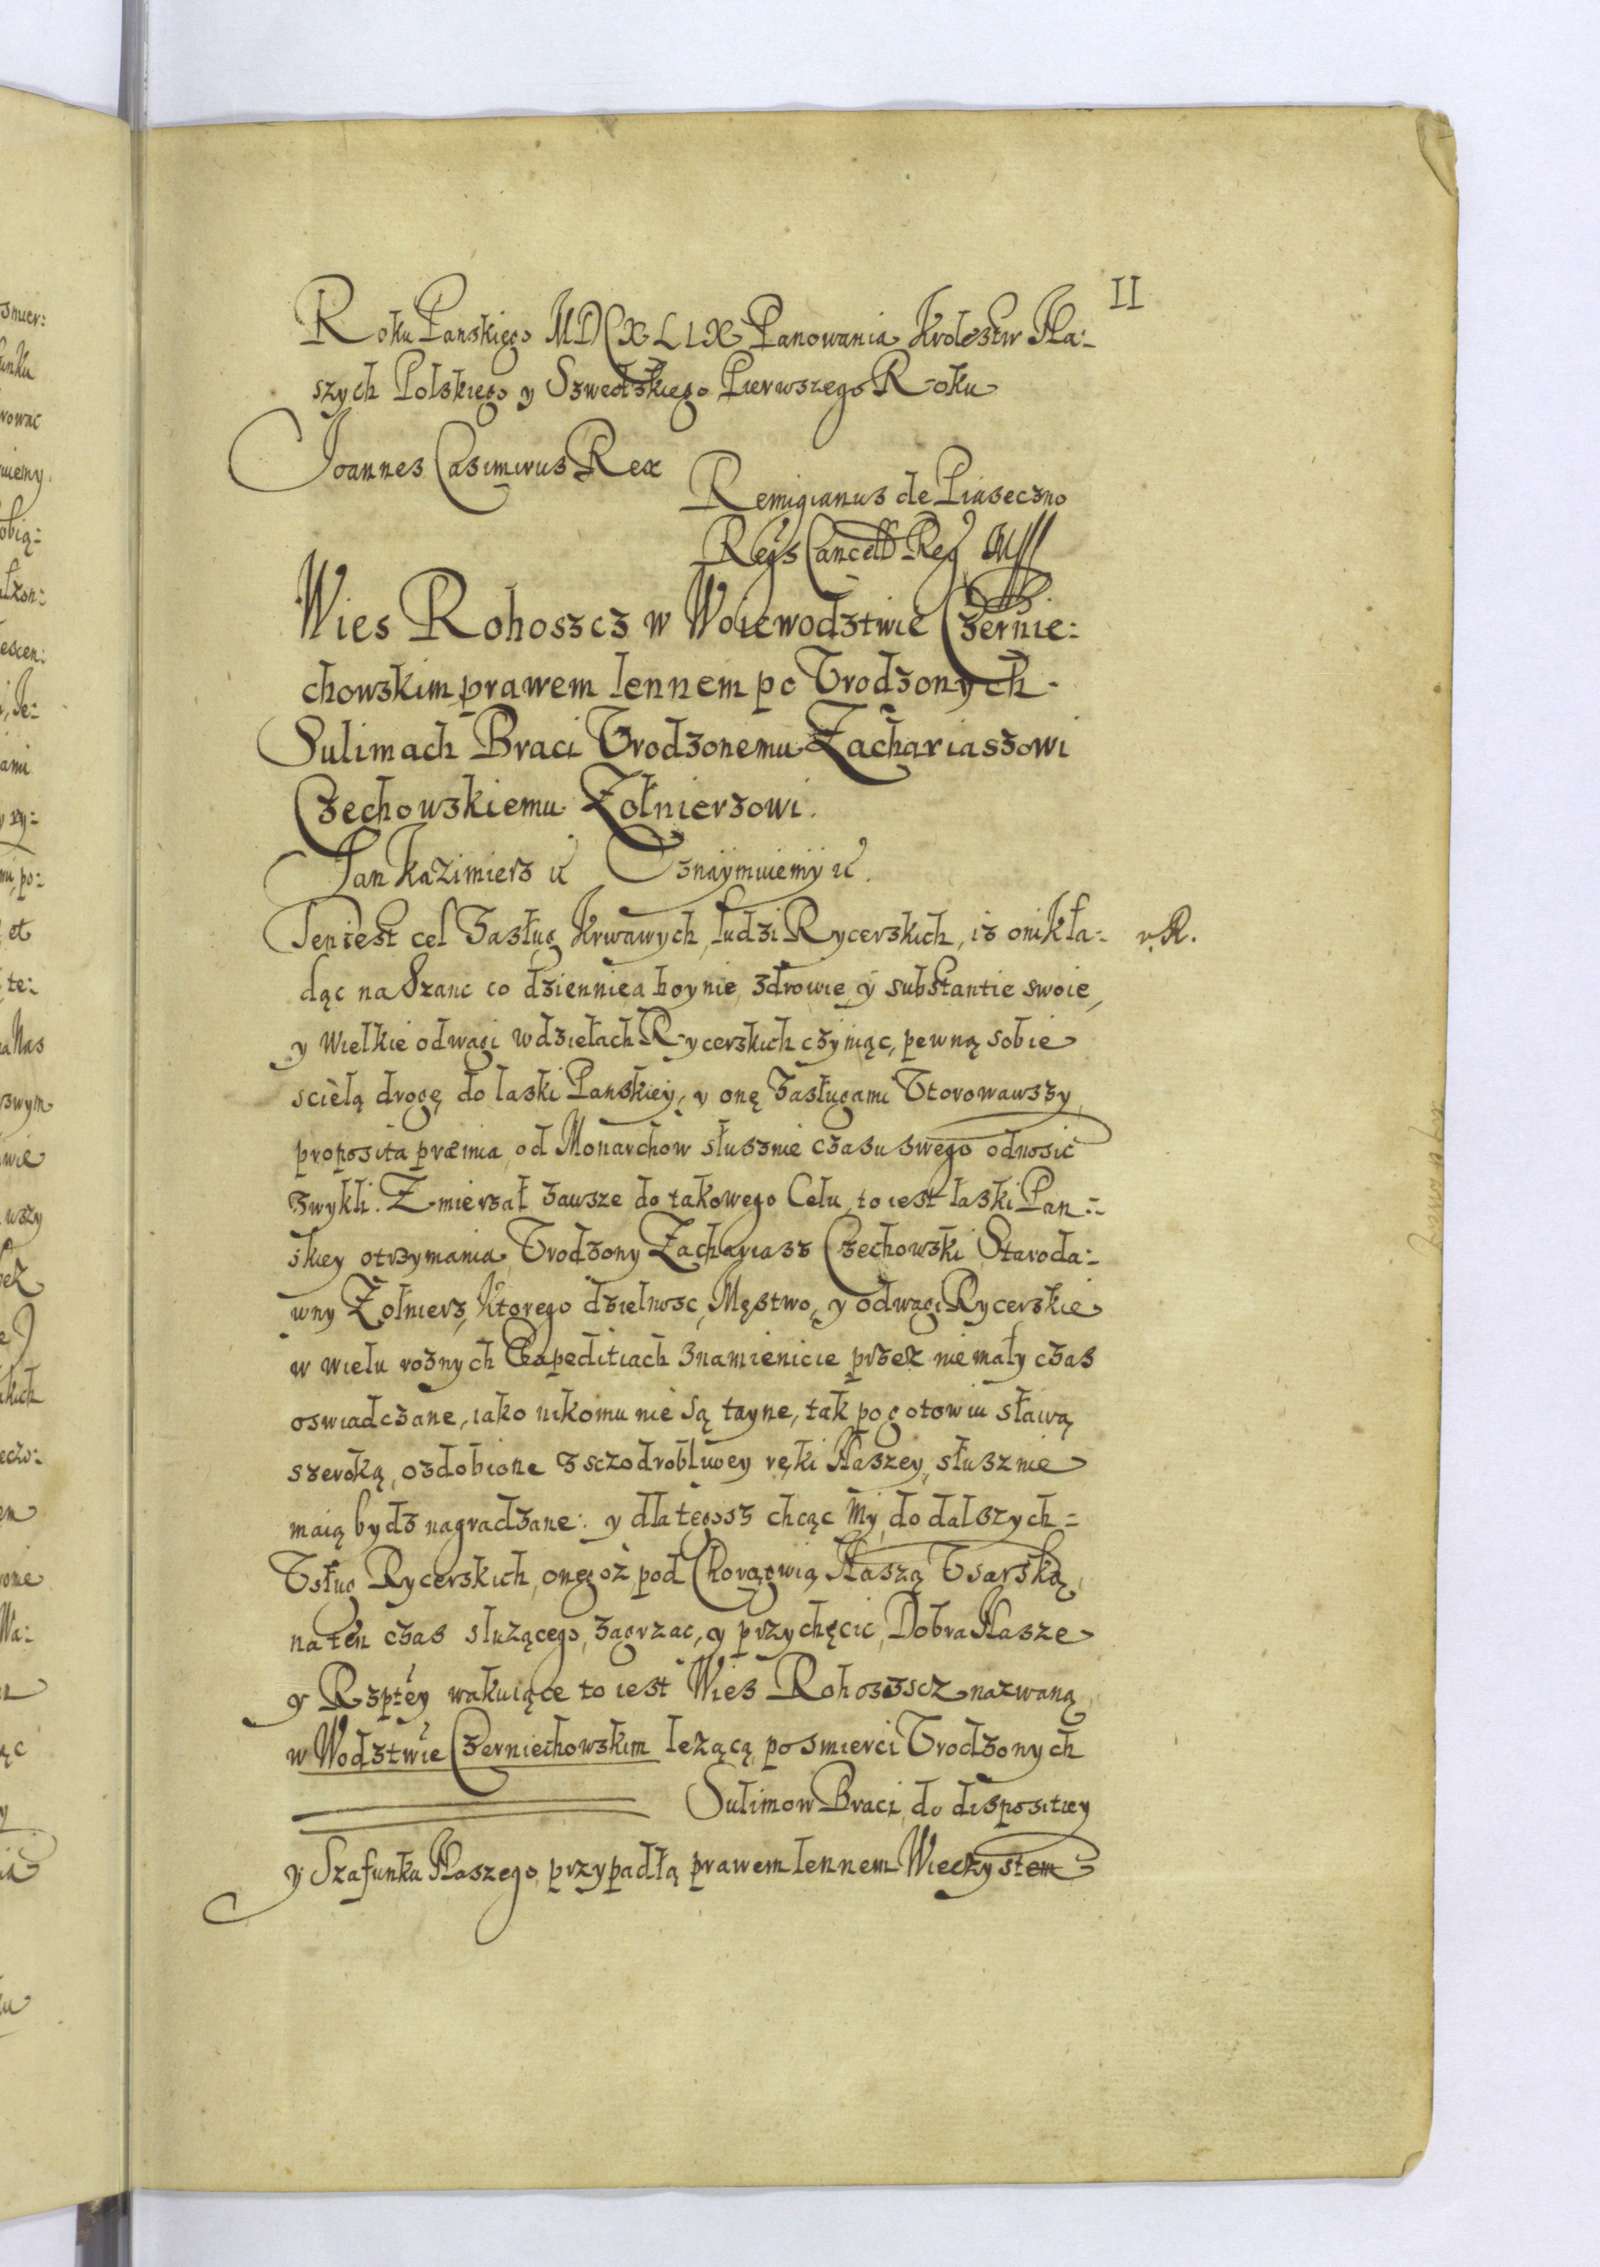 II
Roku Panskiego MDCXLIX Panowania Krolestw Na:
szych Polskiego y Szwedzkiego Pierwszego Roku
Joannes Casimirus Rex
Remigianus de Piaseczno
Reg̃s Cancell Reg
Wies Rohoszcz w Woiewodztwie Czernie:
chowskim prawem lennem po Vrodzonych
Sulimach Braci Vrodzonemu Zachariaszowi
Czechowskiemu Zołnierzowi.
Jan Kazimierz ec Oznaÿmuiemÿ ec.
Ten iest cel Zasług Krwawych, ludzi Rycerskich, iz oni kła:
r. R.
dąc na Szanc co dziennie a hoynie, zdrowie, y substantie swoie,
y wielkie odwagi w dziełach Rycerskich czyniąc, pewną sobie
scielą drogę do laski Panskiey, y onę Zasługami Vtorowawszy
proposita præmia od Monarchow słusznie czasu swego odnosic
zwykli. Zmierzał zawsze do takowego Celu, to iest łaski Pan:
skiey otrzymania, Vrodzony Zachariasz Czechowski Staroda:
wny Zołnierz, Ktorego dzielnosc, Męstwo, y odwagi Rycerskie
w wielu roznych Expeditiach znamienicie przez niemały czas
oswiadczane, iako nikomu nie są tayne, tak pogotowiu sławą
szeroką, ozdobione z sczodrobliwey ręki Naszey, słusznie
maią bydz nagradzane: y dla tegosz chcąc My do dalszych
Vsług Rycerskich, onegoż pod Chorągwią Naszą Vsarską,
na ten czas służącego, zagrzac, y przychęcic, Dobra Nasze
y Rzptey wakuiące to iest Wies Rohoszscz nazwaną,
w Wodztwie Czerniechowskim leżącą, po smierci Vrodzonych
Sulimow Braci, do dispositiey
y Szafunku Naszego przypadłą prawem lennem Wieczystem